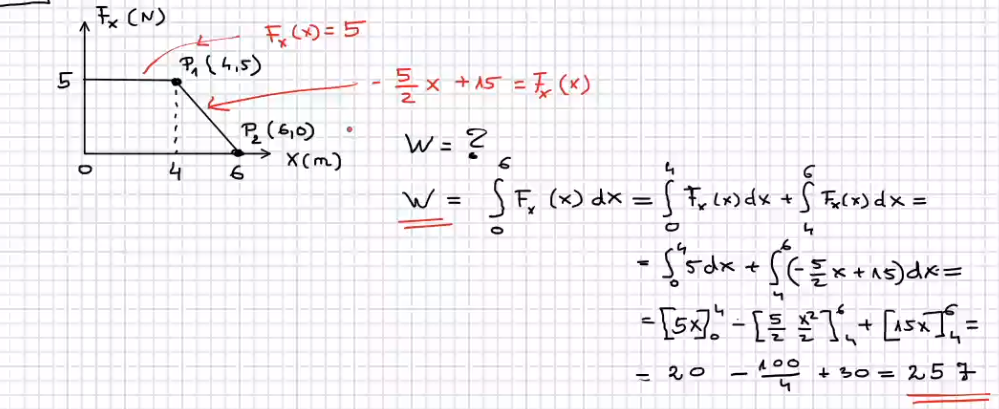 Fₓ (N)
Fₓ(x) = 5
P₁ (4,5)
5
- 5/2 x + 15 = Fₓ(x)
P₂ (6,0)
0 4 6 X(m)
W = ?
W = ∫₀⁶ Fₓ (x) dx = ∫₀⁴ Fₓ(x) dx + ∫₄⁶ Fₓ(x) dx =
= ∫₀⁴ 5 dx + ∫₄⁶ (- 5/2 x + 15) dx =
= [5x]₀⁴ - [5/2 x²/2]₄⁶ + [15x]₄⁶ =
= 20 - 100/4 + 30 = 25 J